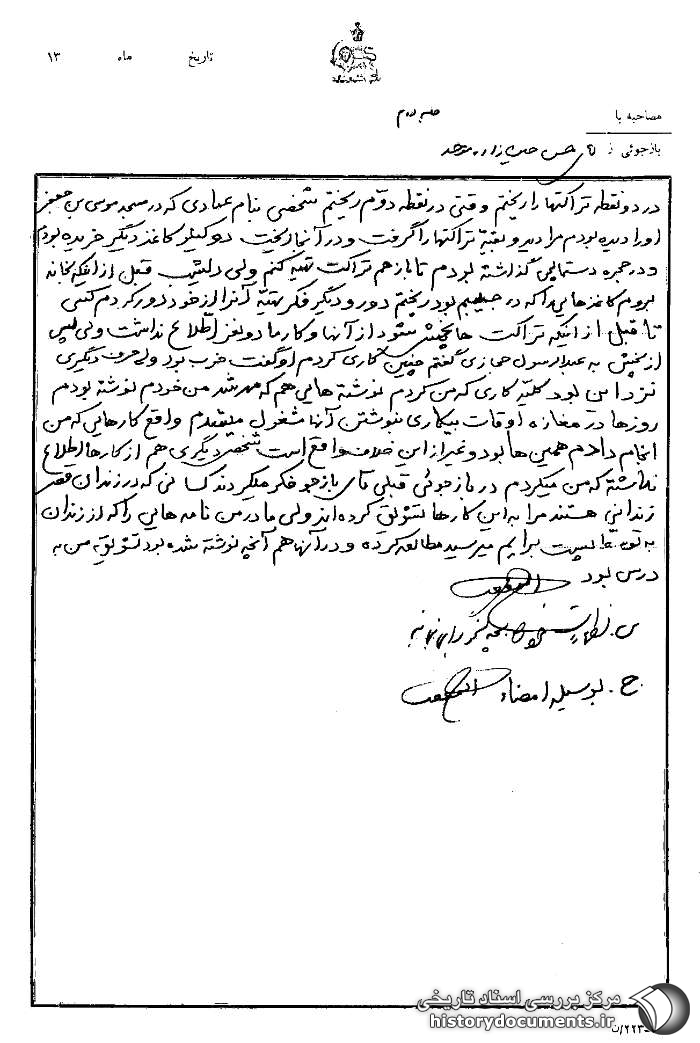 تاریخ ماه ۱۳
مصاحبه با
جلسه دوم
بازجوئی از
در دو نقطه تراکتها را ریختم وقتی در نقطه دوّم ریختم شخصی بنام عبادی که در مسجد موسی بن جعفر
او را دیده بودم مرا دید و بقیه تراکتها را گرفت و در آنجا ریخت دو کیلو کاغذ دیگر خریده بودم
و در حجره دستمالچی گذاشته بودم تا باز هم تراکت تهیه کنم ولی قبل از اینکه بخانه
بروم کاغذهایی را که در جیبم بود ریختم دور و دیگر فکر تهیّه آنرا از خود دور کردم کسی
تا قبل از اینکه تراکت ها پخش شود از آنها و کار ما دو نفر اطلاع نداشت ولی پس
از پخش به عبدالرسول حجازی گفتم چنین کاری کردم او گفت خوب بود ولی حرف دیگری
نزد این بود کلیّه کاری که من کردم نوشته هایی هم که من خودم نوشته بودم
روزها در مغازه اوقات بیکاری بنوشتن آنها مشغول میشدم واقع کارهایی که من
انجام دادم همین ها بود و غیر از این خلاف واقع است شخص دیگری هم از کارها اطلاع
نداشته که من میکردم در بازجوئی قبلی آقای بازجو فکر میکردند کسانی که در زندان قصر
زندانی هستند مرا به این کارها تشویق کرده اند ولی مادر من نامه هایی را که از زندان
به توسط پست برایم میرسید مطالعه کرده و در آنها هم آنچه نوشته شده بود تشویق من به
درس بود
س. اظهارات خود را بچه نحو گواهی مینمائید
ج. بوسیله امضاء
مرکز بررسی اسناد تاریخی
historydocuments.ir